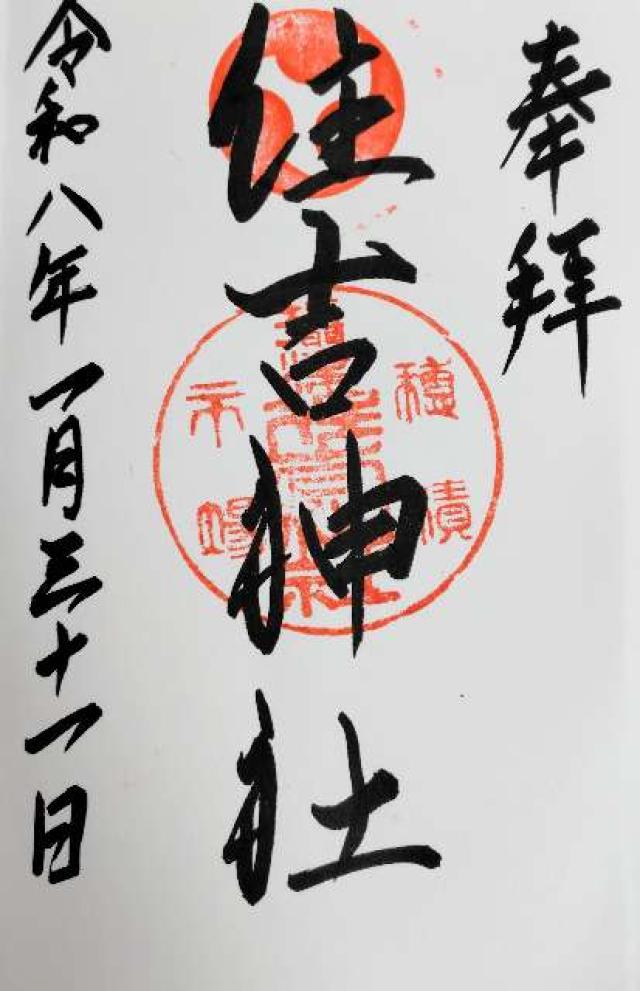 奉拝
住吉神社
穂積
市場
令和八年一月三十一日